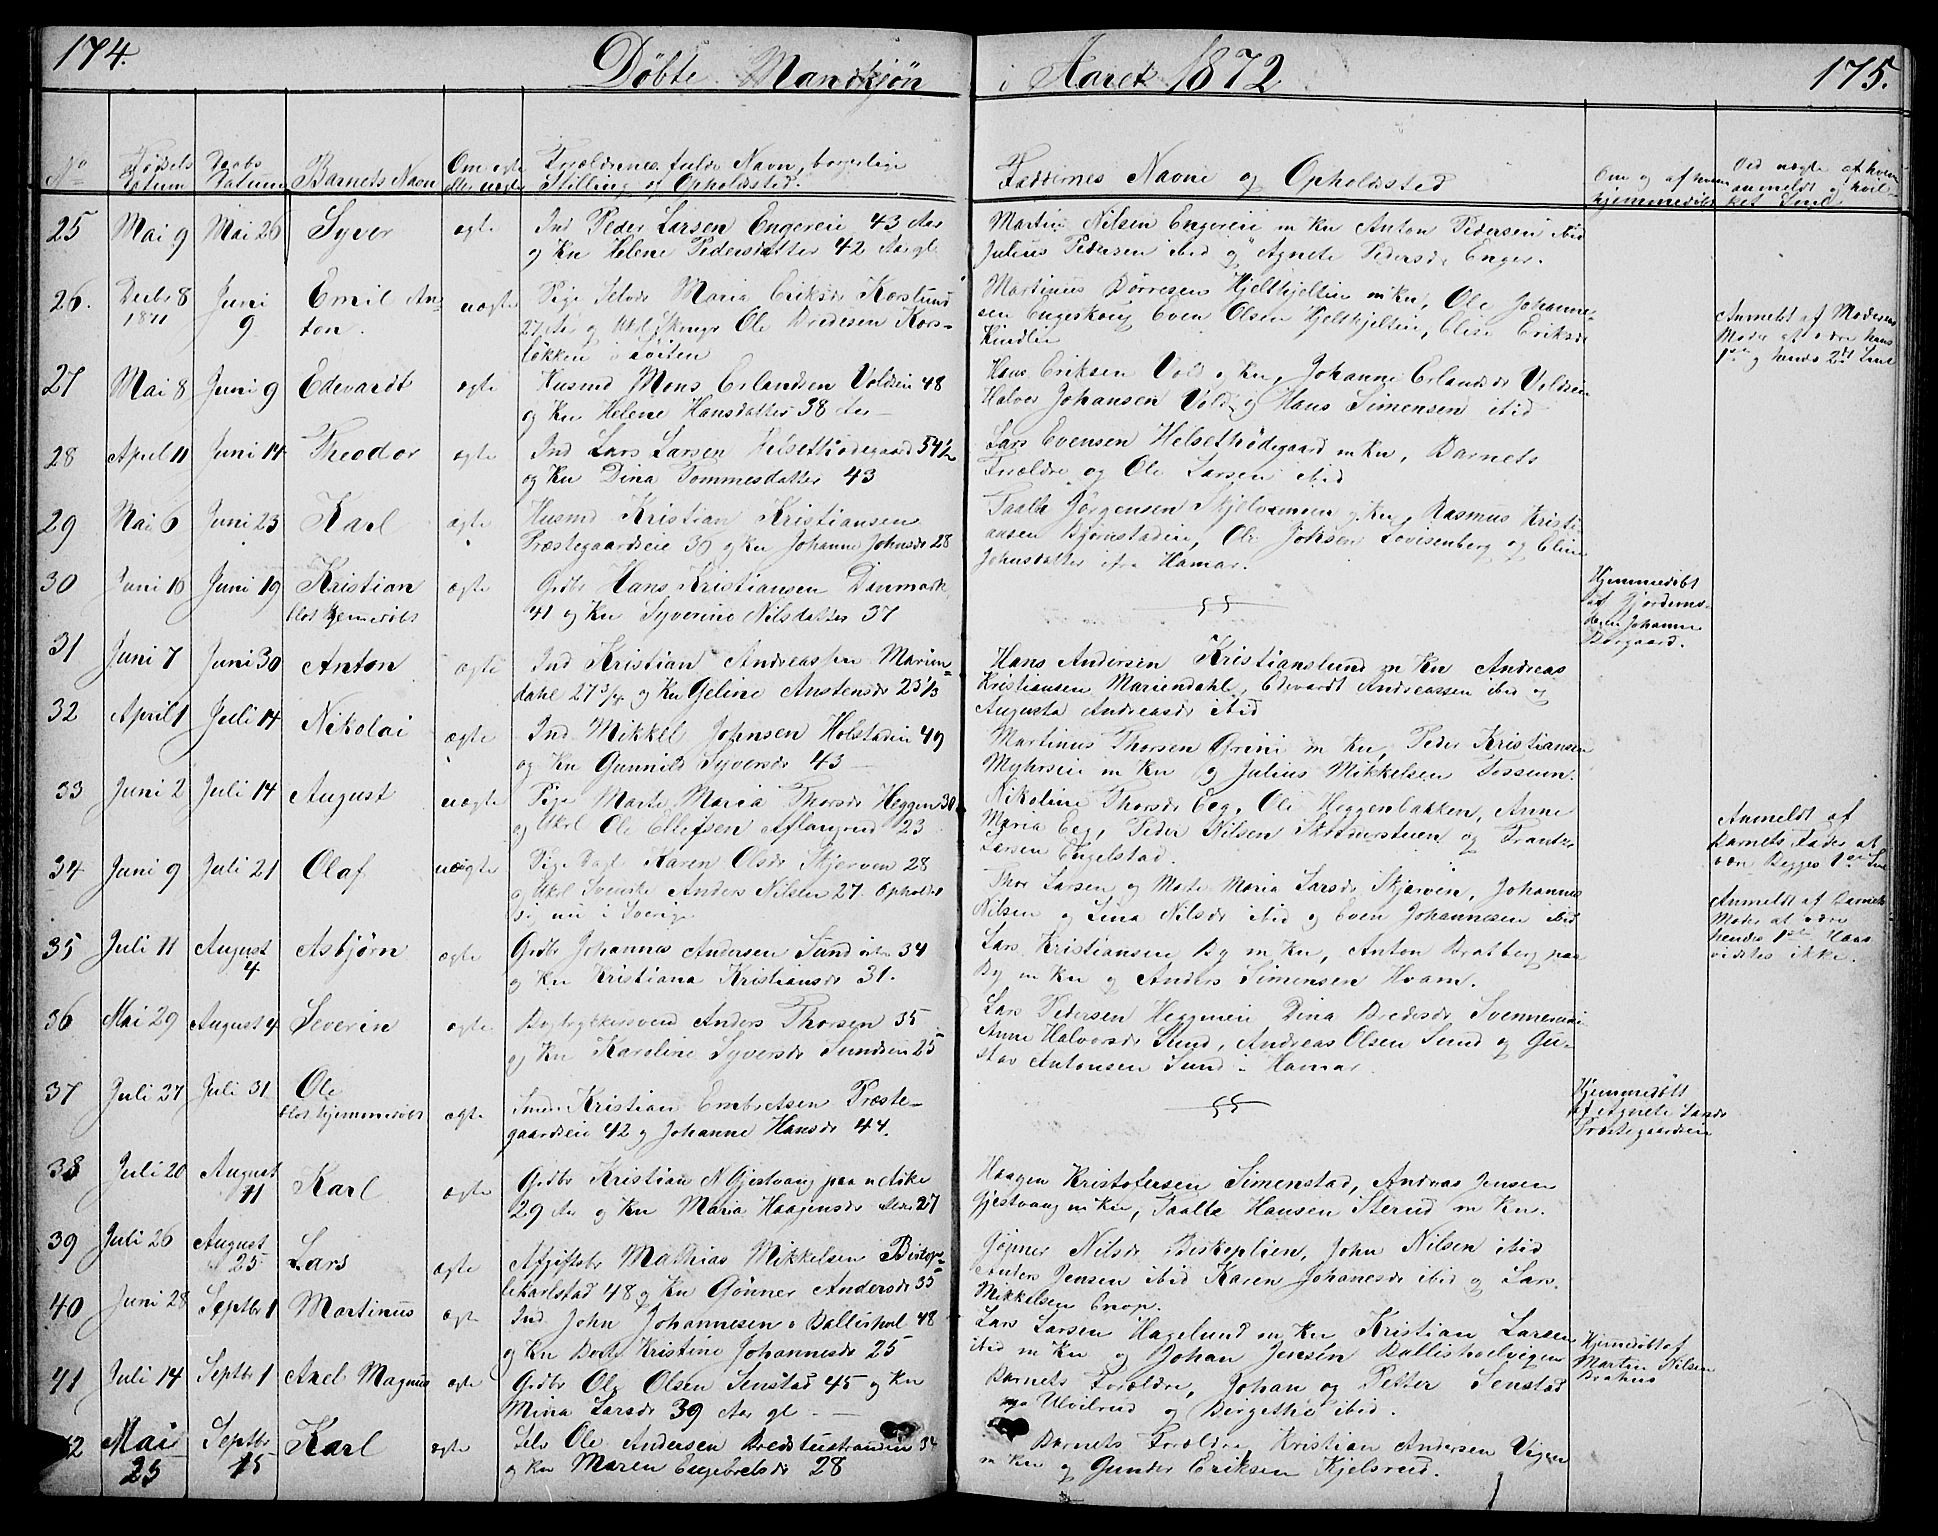 174. Döbte Mandkjön i Aaret 1872 175.
No Fødsels Datum Daabs Datum Barnets Navn Om ægte eller uægte Forældrenes fulde Navn, borgerlige Stilling og Opholdssted. Faddernes Navne og Opholdssted Om og af hvem hjemmedöbt Ved uægte af hvem anmeldt og hvilket
25 Mai 9 Mai 26 Syver ægte Ind Peder Larsen Engereie 43 Aar
og Kn Helene Pedersdatter 42 Aar gl.
Martin Nilsen Engereie m Kn Anton Pedersen ibid
Julius Pedersen ibid og Agnete Pedersdr Enger.
26. Decbr 8 1871 Juni 9 Emil Anton uægte Pige Maria Eriksdr Korslund
27 Aar og Ole Bredesen Korslökken i Löiten
Martinus Börresen Hjeltkjelten m Kn, Ole Johannesen
Engeskoug Even Olsen Hjeltkjelten, Elise Eriksdr
Kindlie
Anmeldt af Moderens
Moder at være hans
1ste og hendes 2det
27 Mai 8 Juni 9 Edevardt ægte Husmd Mons Erlandsen Voldeie 48
og Kn Helene Hansdatter 38 Aar
Hans Eriksen Vold og Kn, Johanne Erlandsdr Voldeie
Halvor Johansen Vold og Hans Simensen ibid
28 April 11 Juni 14 Theodor ægte Ind Lars Larsen Helsethödegaard 54½
og Kn Dina Tommesdatter 43
Lars Evensen Helsethödegaard m Kn, Barnets
Forældre og Ole Larsen ibid
29 Mai 6 Juni 23 Karl ægte Husmd Kristian Kristiansen
Præstegaardseie 36 og Kn Johanne Johnsdr 28
Taale Jörgensen og Kn, Rasmus Kristiansen
Björnstadeie, Ole Johsen Lovisenberg og Eline
Johnsdatter ifra Hamar.
30 Juni 10 Juni 19 Kristian ægte Grdbr Hans Kristiansen Danmark
blot hjemmedöbt 41 og Kn Syverine Nilsdatter 37
Hjemmedöbt
af Gjordemoderen
Johanne
Borgaard.
31 Juni 7 Juni 30 Anton ægte Ind Kristian Andreassen Mariendahl
27¾ og Kn Geline Anstensdr 23⅓
Hans Andersen Kristianslund m Kn Andreas
Kristiansen Mariendahl, Edevardt Andreassen ibid og
Augusta Andreasdr ibid
32 April 1 Juli 14 Nikolai ægte Ind Mikkel Johnsen Holstadeie 49
og Kn Gunnild Syversdr 43
Martinus Thorsen Grini m Kn, Peder Kristiansen
Myhrseie m Kn og Julius Mikkelsen Fossum.
33 Juni 2 Juli 14 August uægte Pige Marte Maria Thorsdr Heggen 30
og Ukrl Ole Ellefsen 23
Nikoline Thorsdr Eeg, Ole Heggenbakken, Anne
Maria Eeg, Peder Nilsen og Frantz
Larsen Engelstad.
Anmeldt af
Barnets Fader at
være Begges 1ste
34 Juni 9 Juli 21 Olaf uægte Pige Karen Olsdr Skjerven 28
og Ukrl Svenske Anders Nilsen 27. Opholder
sig nu i Sverige
Thor Larsen og Marte Maria Larsdr Skjerven, Johannes
Nilsen og Lina Nilsdr ibid og Even Johannesen ibid
Anmeldt af Barnets
Moder at være
hendes 1ste Hans
vidstes ikke.
35 Juli 11 August 4 Asbjörn ægte Grdbr Johannes Andersen Sund 34
og Kn Kristiana Kristiansdr 31.
Lars Kristiansen By m Kn, Anton Bratberg paa
By m Kn og Anders Simensen Hvam.
36 Mai 29 August 4 Severin ægte Bogtrykkersvend Anders Thorsen 35
og Kn Karoline Syversdr Sundseie 25
Lars Pedersen Heggneie Dina Bredesdr
Anne Halvorsdr Stud, Andreas Olsen Sund og Gustav
Antonsen Sund i Hamar.
37 Juli 27 Juli 31 Ole ægte Smed Kristian Embretsen Præstegaardseie
blot hjemmedöbt 42 og Johanne Hansdr 44.
Hjemmedöbt
af Agnete Larsdr
Præstegaardseie
38 Juli 20 August 11 Karl ægte Grdbr Kristian N Gjestvang
29 Aar og Kn Maria Haagensdr 27
Haagen Kristofersen Simenstad, Andreas Jensen
Gjestvang m Kn, Taale Hansen Sterud m Kn.
39 Juli 26 August 25 Lars ægte Afgiftsbr Mathias Mikkelsen
48 og Kn Gönner Andersdr 35
Gönner Nilsdr Biskoplien, John Nilsen ibid
Anders Jensen ibid Karen Johanesdr ibid og Lars
Mikkelsen
40 Juni 28 Septbr 1 Martinus ægte Ind John Johannesen 48
og Kn Kristine Johannesdr 25
Lars Larsen Hagelund m Kn Kristian Larsen
ibid m Kn og Johan Jensen
41 Juli 14 Septbr 1 Axel Magnus ægte Grdbr Ole Olsen Senstad 45 og Kn
Mina Larsdr 39 Aar gl.
Barnets Forældre, Johan og Petter Senstad
Ulvilrud og Bergethe ibid.
Hjemmedöbt af
Martin Nilsen
42 Mai 25 Septbr 15 Karl ægte Selv Ole Andersen 34
og Kn Maren Engebretsdr 28
Barnets Forældre, Kristian Andersen Vigen
m Kn og Gunder Eriksen Kjelsrud.